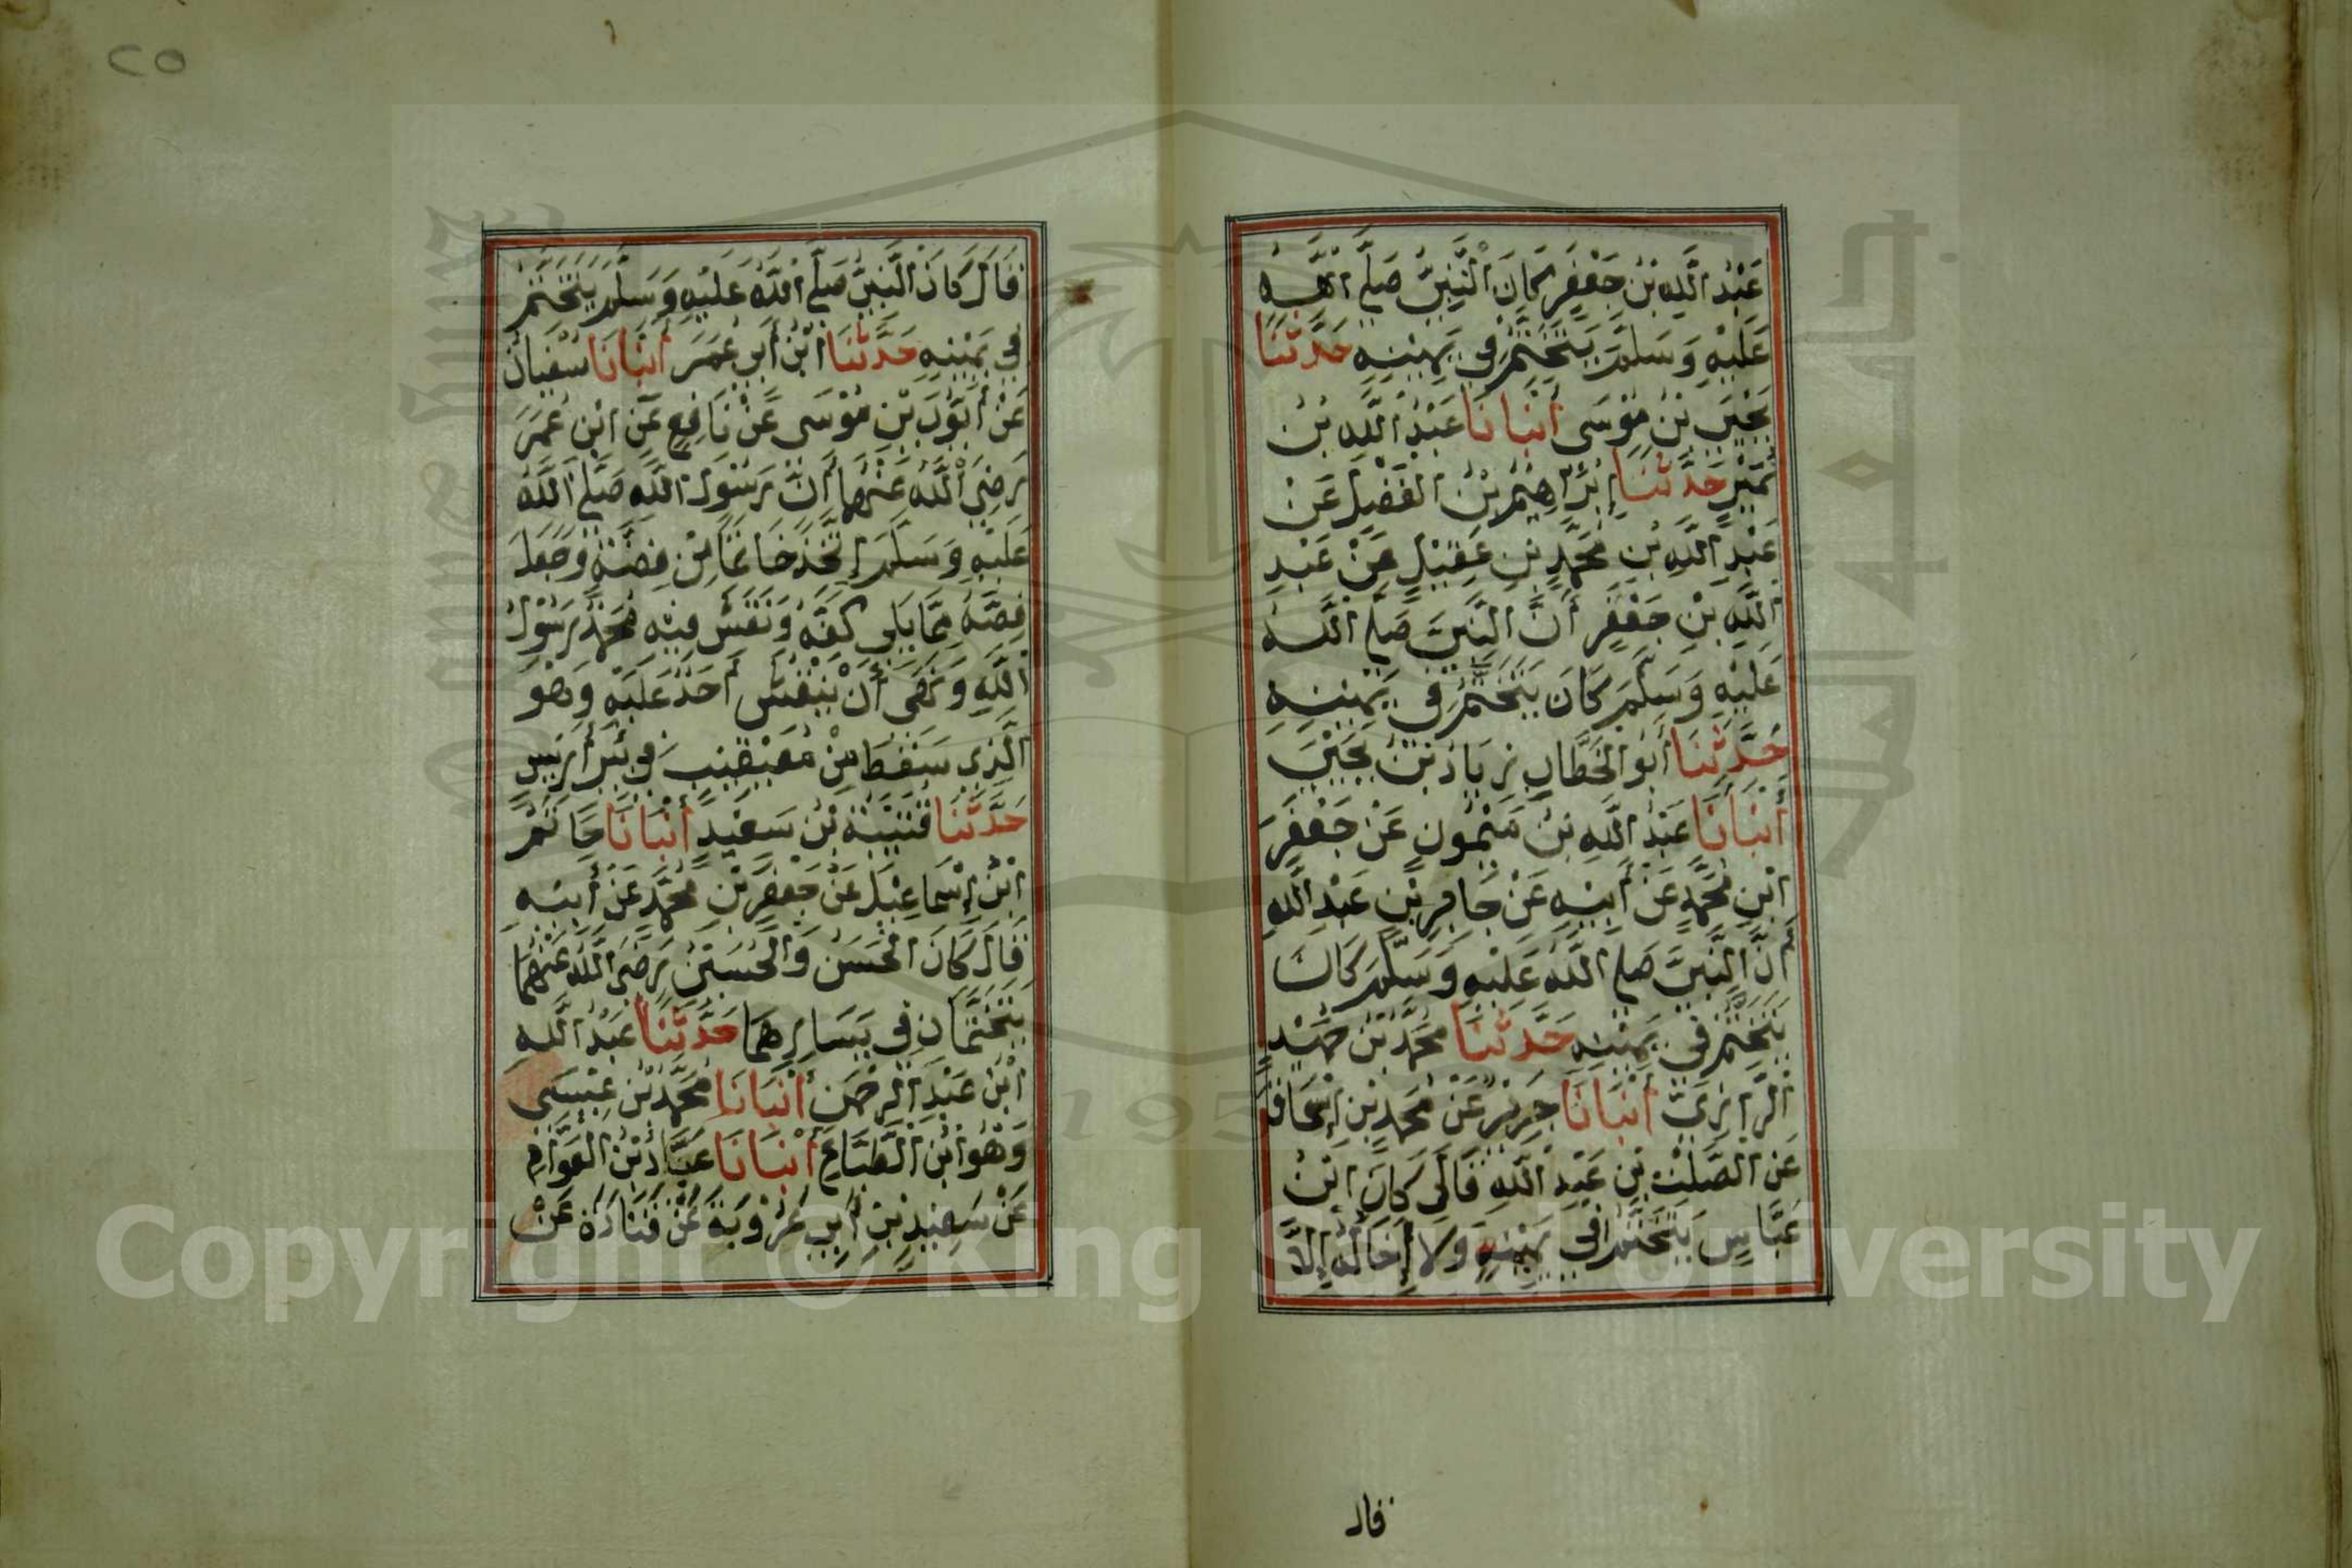 عَبْدُ اللَّهِ بْنُ جَعْفَرٍ كَانَ النَّبِيُّ صَلَّى اللَّهُ
عَلَيْهِ وَسَلَّمَ يَتَخَتَّمُ فِي يَمِينِهِ حَدَّثَنَا
يَحْيَى بْنُ مُوسَى أَنْبَانَا عَبْدُ اللَّهِ بْنُ
نُمَيْرٍ حَدَّثَنَا إِبْرَاهِيمُ بْنُ الفَضْلِ عَنْ
عَبْدِ اللَّهِ بْنِ مُحَمَّدِ بْنِ عَقِيْلٍ عَنْ عَبْدِ
اللَّهِ بْنِ جَعْفَرٍ أَنَّ النَّبِيَّ صَلَّى اللَّهُ
عَلَيْهِ وَسَلَّمَ كَانَ يَتَخَتَّمُ فِي يَمِينِهِ
حَدَّثَنَا أَبُو الخَطَّابِ زِيَادُ بْنُ يَحْيَى
أَنْبَانَا عَبْدُ اللَّهِ بْنُ مَيْمُونٍ عَنْ جَعْفَرِ
ابْنِ مُحَمَّدٍ عَنْ أَبِيْهِ عَنْ جَابِرِ بْنِ عَبْدِ اللَّهِ
أَنَّ النَّبِيَّ صَلَّى اللَّهُ عَلَيْهِ وَسَلَّمَ كَانَ
يَتَخَتَّمُ فِي يَمِينِهِ حَدَّثَنَا مُحَمَّدُ بْنُ حُمَيْدٍ
الرَّازِيُّ أَنْبَانَا جَرِيْرٌ عَنْ مُحَمَّدِ بْنِ إِسْحَاقَ
عَنِ الصَّلْتِ بْنِ عَبْدِ اللَّهِ قَالَ كَانَ ابْنُ
عَبَّاسٍ يَتَخَتَّمُ فِي يَمِينِهِ وَلَا إِخَالُهُ إِلَّا
قال
٢٥
قَالَ كَانَ النَّبِيُّ صَلَّى اللَّهُ عَلَيْهِ وَسَلَّمَ يَتَخَتَّمُ
فِي يَمِينِهِ حَدَّثَنَا ابْنُ أَبِي عُمَرَ أَنْبَانَا سُفْيَانُ
عَنْ أَيُّوبَ بْنِ مُوْسَى عَنْ نَافِعٍ عَنِ ابْنِ عُمَرَ
رَضِيَ اللَّهُ عَنْهُمَا أَنَّ رَسُوْلَ اللَّهِ صَلَّى اللَّهُ
عَلَيْهِ وَسَلَّمَ إِتَّخَذَ خَاتَمًا مِنْ فِضَّةٍ وَجَعَلَ
فَصَّهُ مِمَّا يَلِي كَفَّهُ وَنَقَشَ فِيْهِ مُحَمَّدٌ رَسُوْلُ
اللَّهِ وَنَهَى أَنْ يَنْقُشَ أَحَدٌ عَلَيْهِ وَهُوَ
الَّذِي سَقَطَ مِنْ مُعَيْقِيْبٍ فِي بِئْرِ أَرِيْسٍ
حَدَّثَنَا قُتَيْبَةُ بْنُ سَعِيْدٍ أَنْبَانَا حَاتَمُ
ابْنُ إِسْمَاعِيْلَ عَنْ جَعْفَرِ بْنِ مُحَمَّدٍ عَنْ أَبِيْهِ
قَالَ كَانَ الْحَسَنُ وَالْحُسَيْنُ رَضِيَ اللَّهُ عَنْهُمَا
يَتَخَتَّمَانِ فِي يَسَارِهِمَا حَدَّثَنَا عَبْدُ اللَّهِ
ابْنُ عَبْدِ الرَّحْمَنِ أَنْبَانَا مُحَمَّدُ بْنُ عِيْسَى
وَهُوَ ابْنُ الطَّبَّاعِ أَنْبَانَا عَبَّادُ بْنُ العَوَّامِ
عَنْ سَعِيْدِ بْنِ أَبِي عَرُوْبَةَ عَنْ قَتَادَةَ عَنْ
Copyright © King Saud University